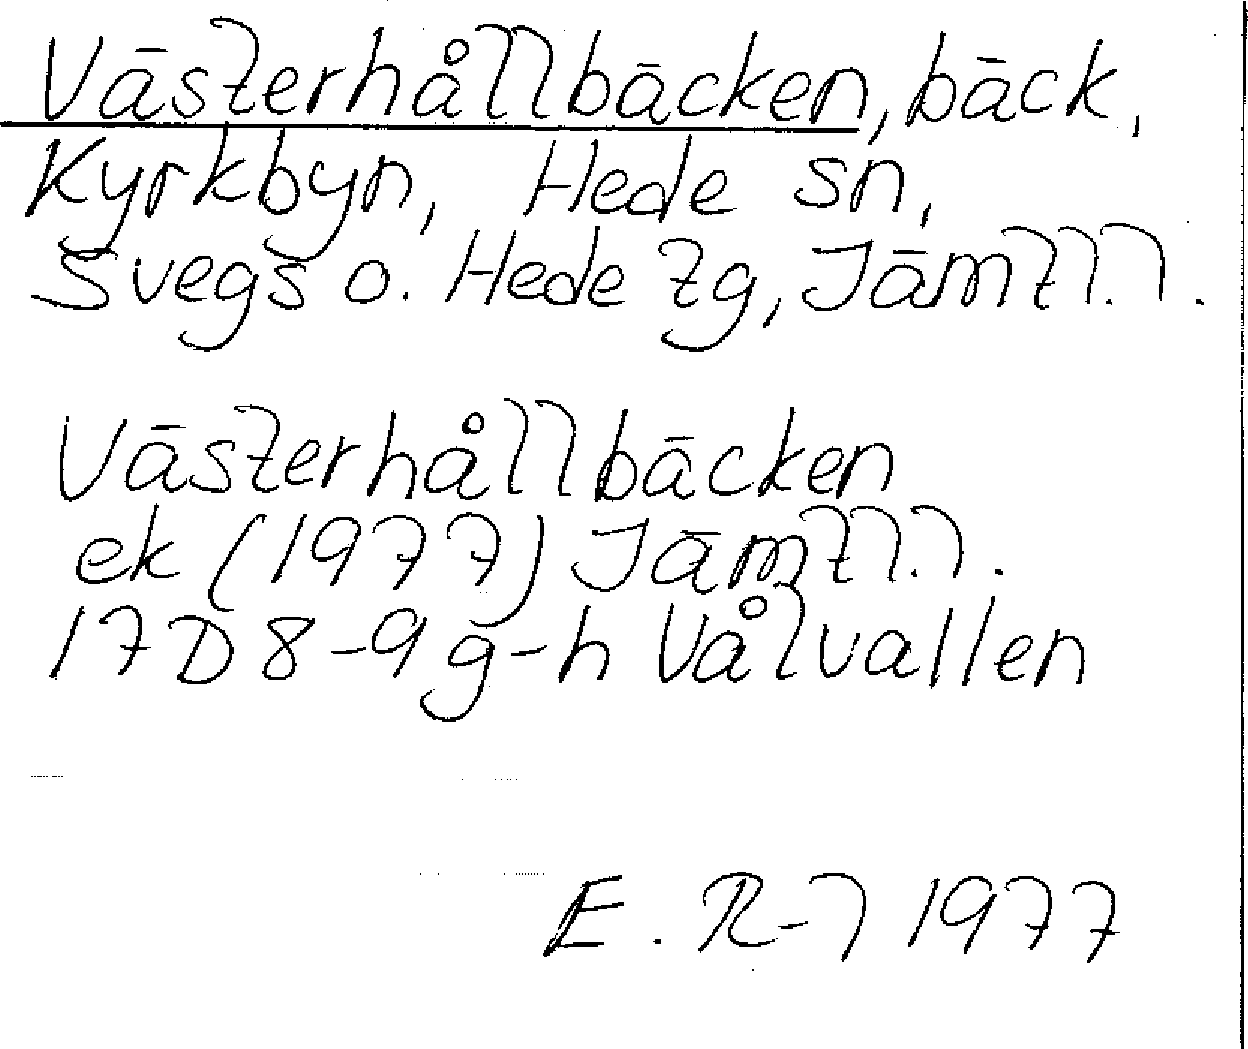 Västerhållbäcken, bäck,
Kyrkbyn, Hede sn,
Svegs o. Hede tg, Jämtl. l.
Västerhållbäcken
ek (1977) Jämtl. l.
17D 8-9 g-h Vålvallen
E. R-l 1977